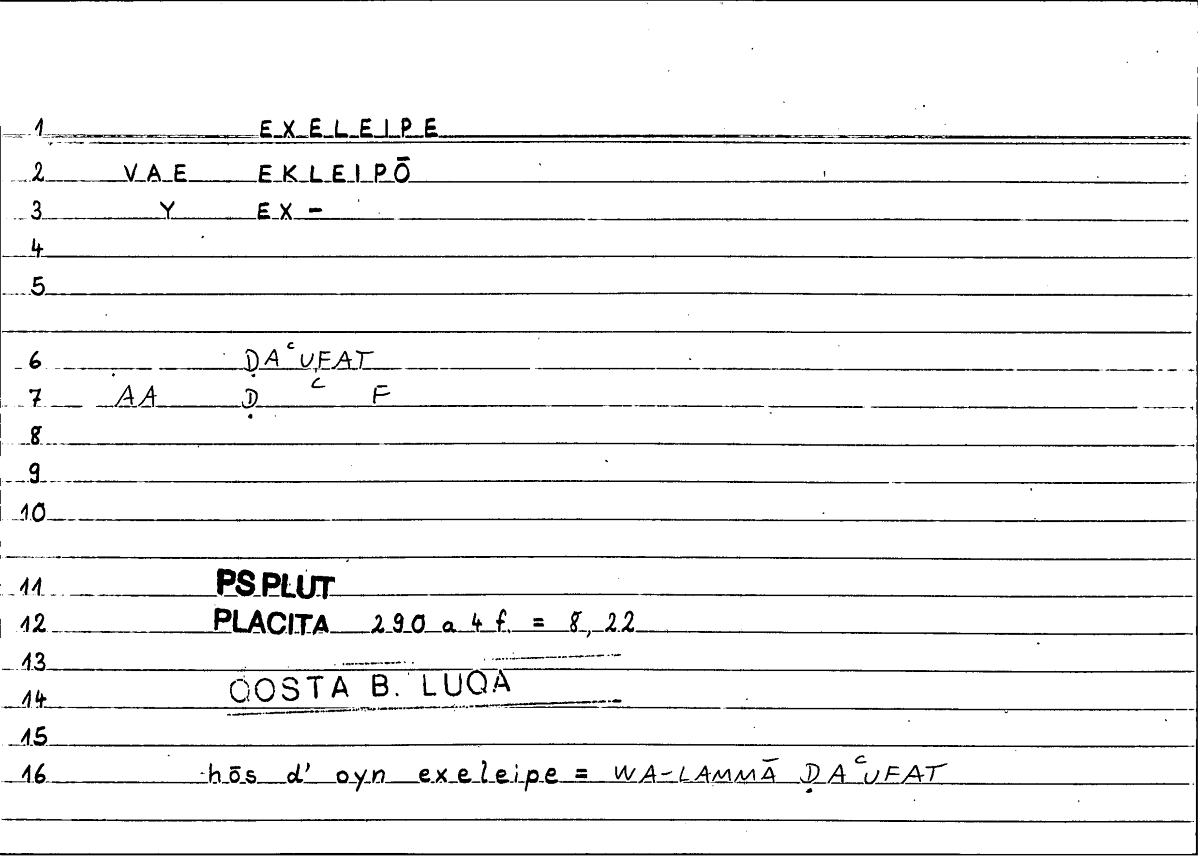 1 EXELEIPE
2 VAE EKLEIPŌ
3 Y EX-
4
5
6 ḌAᶜUFAT
7 AA Ḍ ᶜ F
8
9
10
11 PS PLUT
12 PLACITA 290 a 4 f. = 8, 22
13
14 QOSTA B. LUQA
15
16 hōs d' oyn exeleipe = WA-LAMMĀ ḌAᶜUFAT